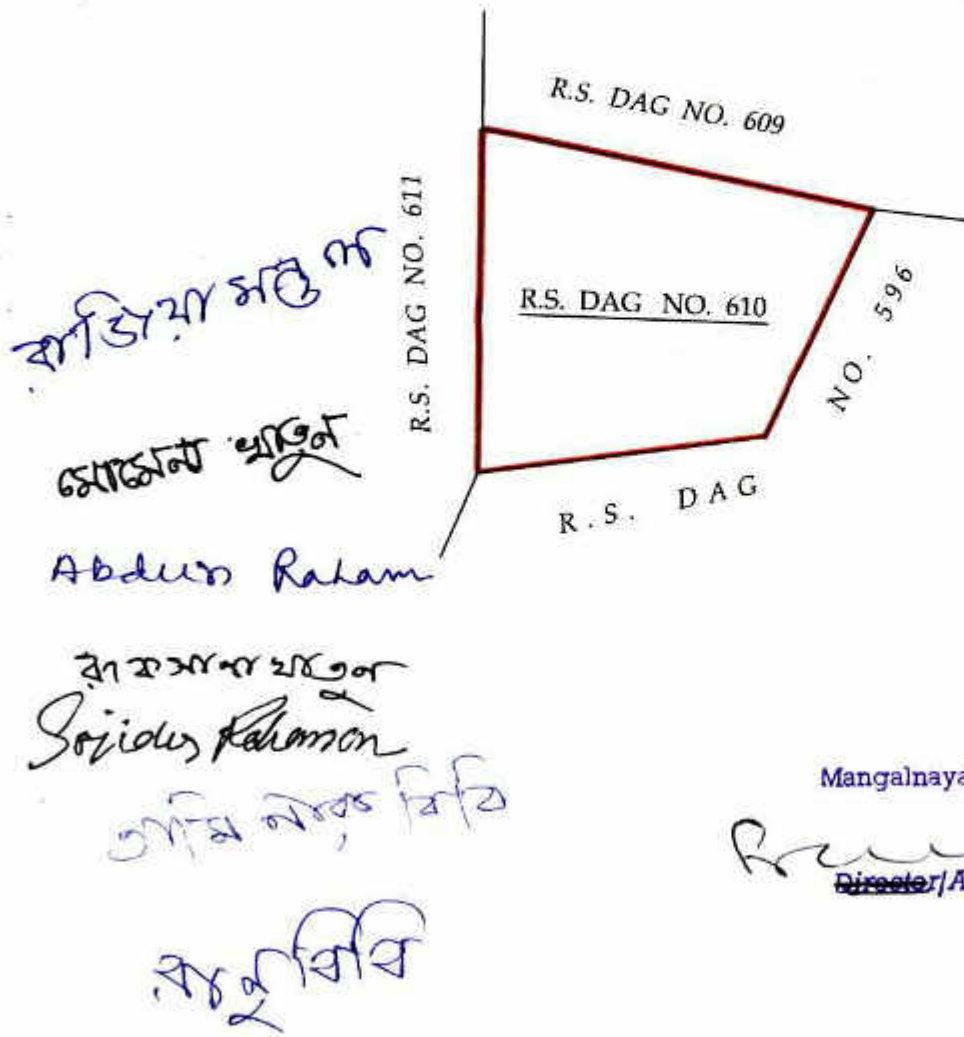 R.S. DAG NO. 609
R.S. DAG NO. 611
R.S. DAG NO. 610
NO. 596
R.S. DAG
রাজিয়া মণ্ডল
মোমেনা খাতুন
Abdur Raham
রাকসানা খাতুন
Sajidur Rahaman
তাসলিমারা বিবি
রানু বিবি
Mangalnaya
Director/A